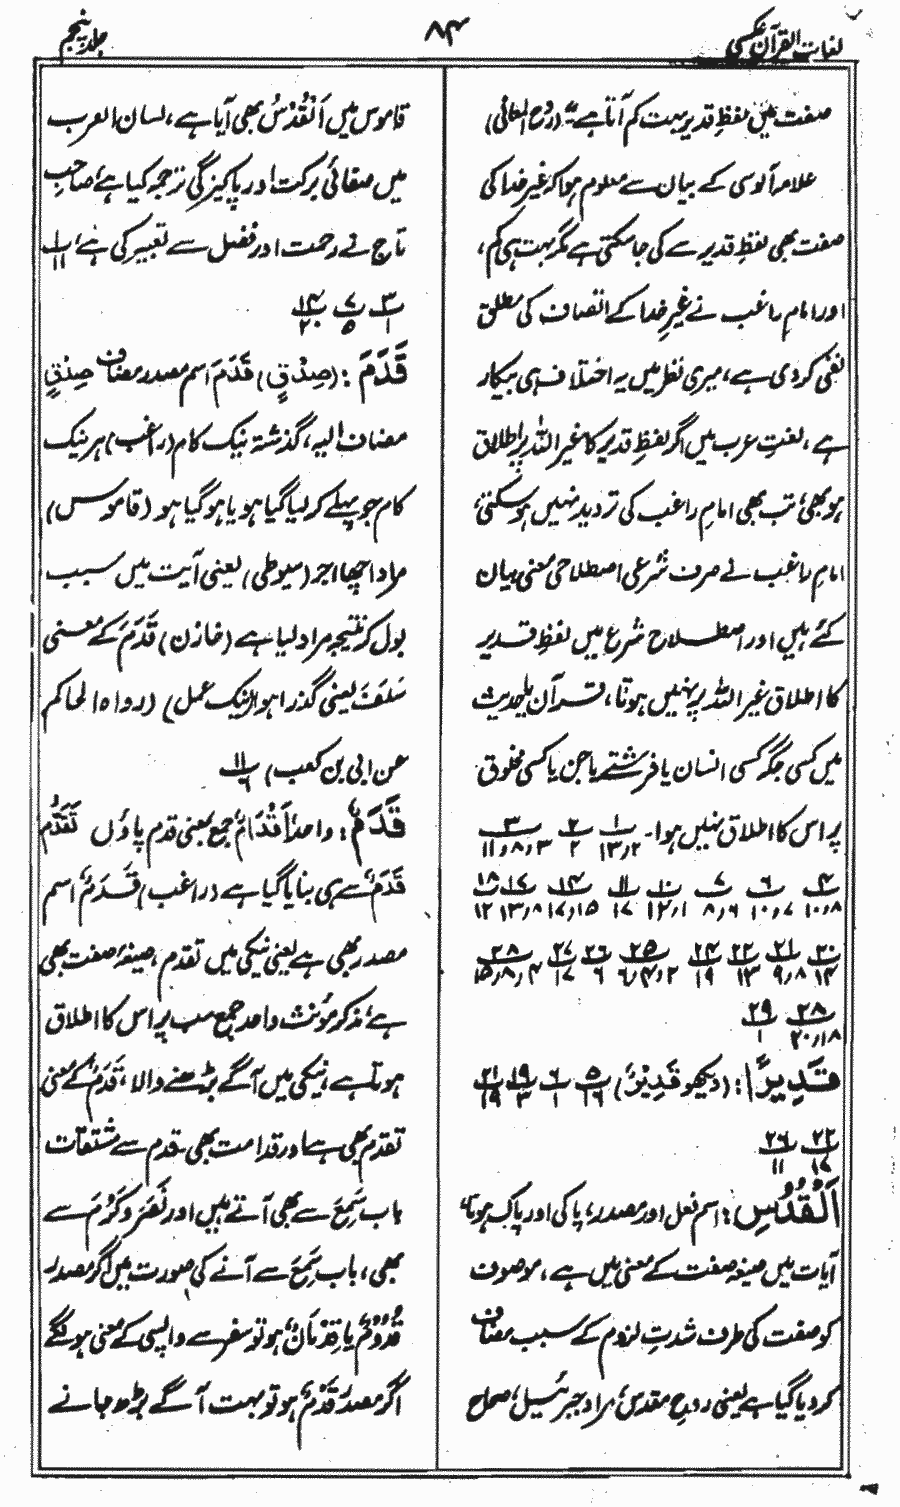 لغات القرآن عکسی
۸۴
جلد پنجم
صفت میں لفظِ قدیر بہت کم آتا ہے (روح المعانی)
علامہ آلوسی کے بیان سے معلوم ہوا کہ غیر خدا کی
صفت بھی لفظِ قدیر سے کی جا سکتی ہے مگر بہت ہی کم،
اور امام راغب نے غیرِ خدا کے اتصاف کی مطلق
نفی کر دی ہے، میری نظر میں یہ اختلاف ہی بیکار
ہے، لغتِ عرب میں اگر لفظِ قدیر کا غیر اللہ پر اطلاق
ہو بھی، تب بھی امام راغب کی تردید نہیں ہو سکتی،
امام راغب نے صرف شرعی اصطلاحی معنی بیان
کئے ہیں اور اصطلاح شرع میں لفظِ قدیر
کا اطلاق غیر اللہ پر نہیں ہوتا، قرآن یا حدیث
میں کسی جگہ کسی انسان یا فرشتے یا جن یا کسی مخلوق
پر اس کا اطلاق نہیں ہوا۔ ۱/۱۳٫۲ ۲/۲ ۳/۱۱٫۸٫۳
۴/۱۰٫۸ ۶/۱۰٫۷ ۷/۸٫۶ ۱۰/۱۲٫۱ ۱۱/۱۷ ۱۴/۱۷٫۱۵ ۱۷/۱۳٫۸ ۱۸/۱۲
۲۰/۱۴ ۲۱/۹٫۸ ۲۲/۱۳ ۲۴/۱۹ ۲۵/۶٫۴٫۲ ۲۶/۶ ۲۷/۱۷ ۲۸/۱۵٫۸٫۴
۲۸/۲۰٫۱۸ ۲۹/۱
قَدِيرًا: (دیکھو قَدِیْرٌ) ۵/۱۶ ۶/۱ ۱۹/۳ ۲۱/۱۹
۲۲/۱۷ ۲۶/۱۱
اَلْقُدُسِ: اسم فعل اور مصدر، پاکی اور پاک ہونا،
آیات میں صیغہ صفت کے معنی میں ہے، موصوف
کو صفت کی طرف شدتِ لزوم کے سبب مضاف
کر دیا گیا ہے یعنی روحِ مقدس، مراد جبرئیل، صحاح
قاموس میں اَلْقُدْسُ بھی آیا ہے، لسان العرب
میں صفائی برکت اور پاکیزگی ترجمہ کیا ہے، صاحبِ
تاج نے رحمت اور فضل سے تعبیر کی ہے، ۱/۱۱
۳/۱ ۷/۵ ۱۴/۲۰
قَدَمَ: (صِدْقٍ) قَدَمَ اسم مصدر مضاف صِدْقٍ
مضاف الیہ، گذشتہ نیک کام (راغب) ہر نیک
کام جو پہلے کر لیا گیا ہو یا ہو گیا ہو (قاموس)
مراد اچھا اجر (سیوطی) یعنی آیت میں سبب
بول کر نتیجہ مراد لیا ہے (خازن) قَدَمَ کے معنی
سَلَفَتَ یعنی گذرا ہوا نیک عمل) (رواہ الحاکم
عن ابی بن کعب) ۱۱/۶
قَدَمٌ: واحد، اَقْدَامٌ جمع بمعنی قدم پاؤں تَقَدُّم
قَدَمٌ سے ہی بنایا گیا ہے (راغب) قَدَمٌ اسم
مصدر بھی ہے یعنی نیکی میں تقدم، صیغہ صفت بھی
ہے، مذکر مؤنث واحد جمع سب پر اس کا اطلاق
ہوتا ہے، نیکی میں آگے بڑھنے والا، قَدَمٌ کے معنی
تقدم بھی ہے اور قدامت بھی، قدم سے مشتقات
باب سَمِعَ سے بھی آتے ہیں اور نَصَرَ و کَرُمَ سے
بھی، باب سَمِعَ سے آنے کی صورت میں اگر مصدر
قُدُوْمٌ یا قِدْمَانٌ ہو تو سفر سے واپسی کے معنی ہونگے
اگر مصدر قَدْمٌ ہو تو بہت آگے بڑھ جانے